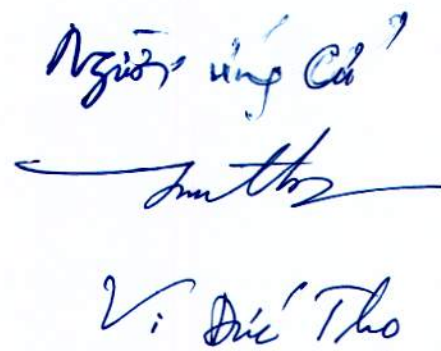 Người ứng Cử
Vi Đức Thọ